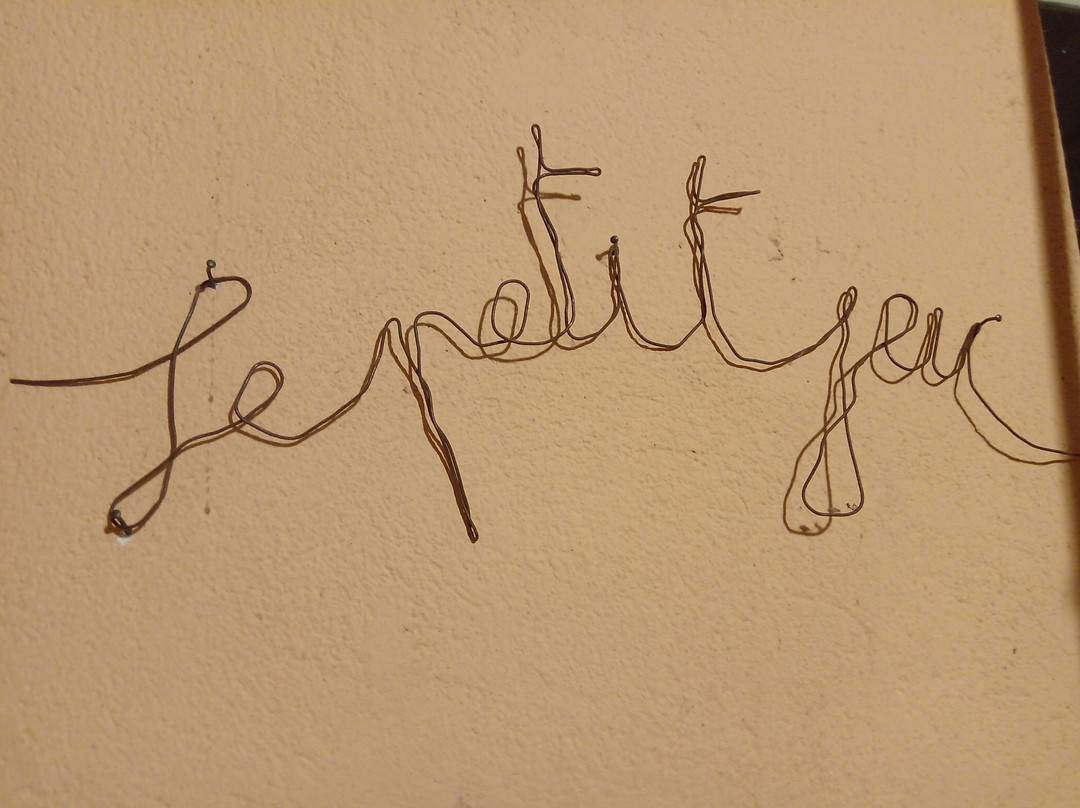 Le petit jeu